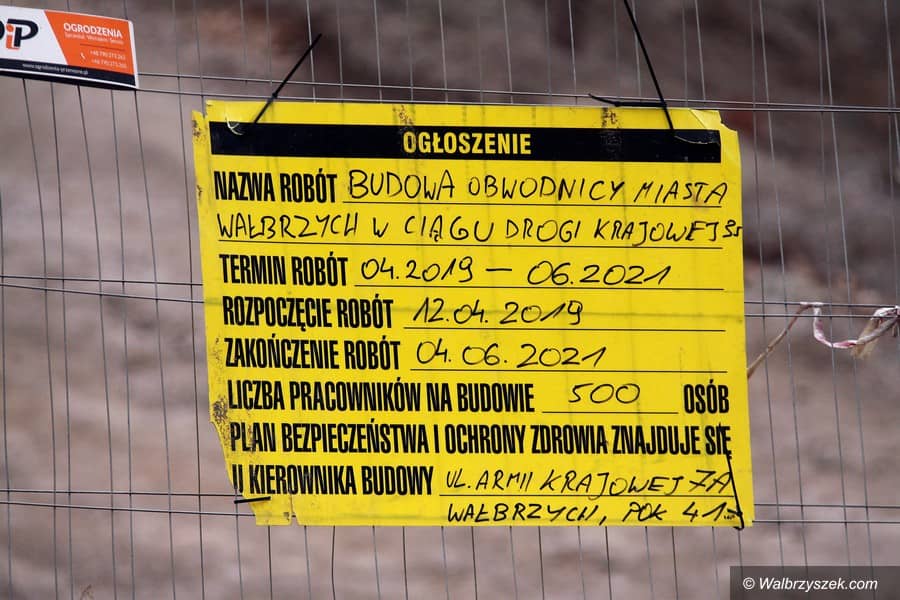 iP OGRODZENIA
Sprzedaż, Wynajem, Serwis
www.ogrodzenia-przenosne.pl
OGŁOSZENIE
NAZWA ROBÓT BUDOWA OBWODNICY MIASTA
WAŁBRZYCH W CIĄGU DROGI KRAJOWEJ 35
TERMIN ROBÓT 04.2019 – 06.2021
ROZPOCZĘCIE ROBÓT 12.04.2019
ZAKOŃCZENIE ROBÓT 04.06.2021
LICZBA PRACOWNIKÓW NA BUDOWIE 500 OSÓB
PLAN BEZPIECZEŃSTWA I OCHRONY ZDROWIA ZNAJDUJE SIĘ
U KIEROWNIKA BUDOWY UL. ARMII KRAJOWEJ 7A
WAŁBRZYCH, POK 41
© Walbrzyszek.com